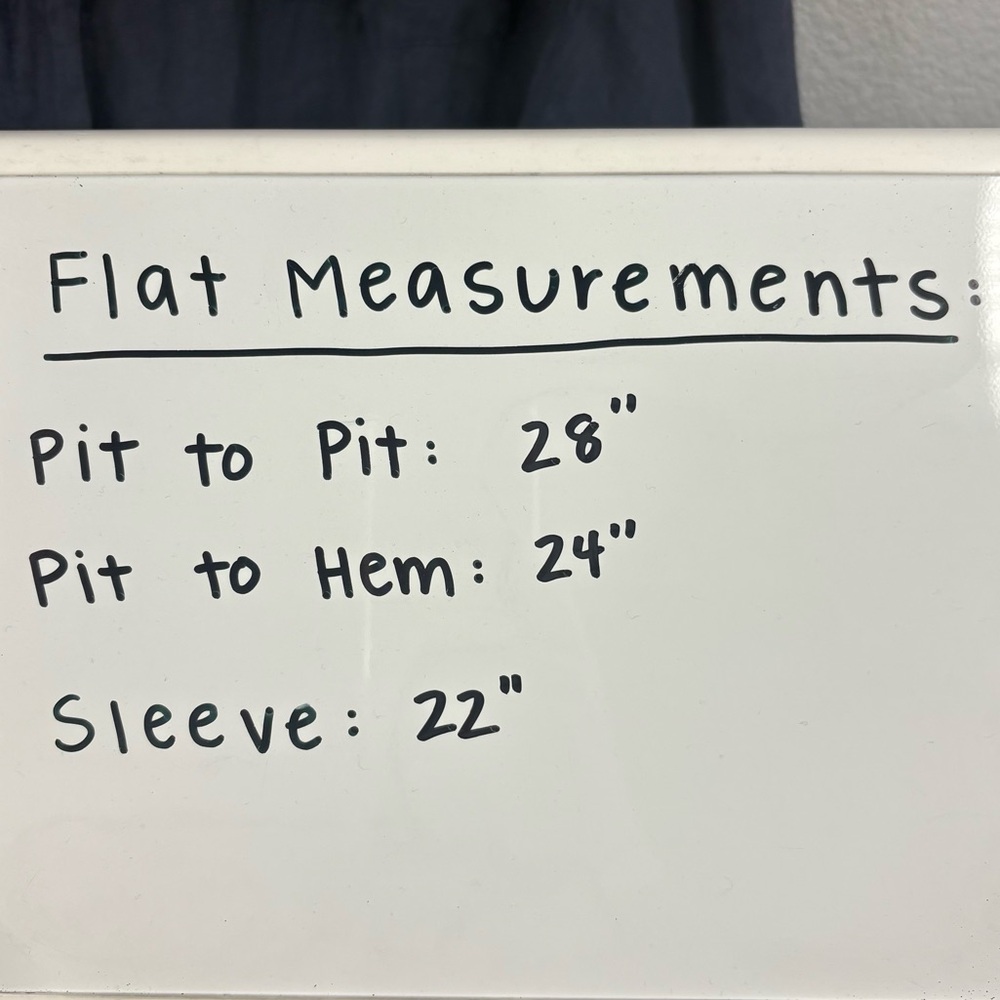 Flat Measurements:
Pit to Pit: 28"
Pit to Hem: 24"
Sleeve: 22"